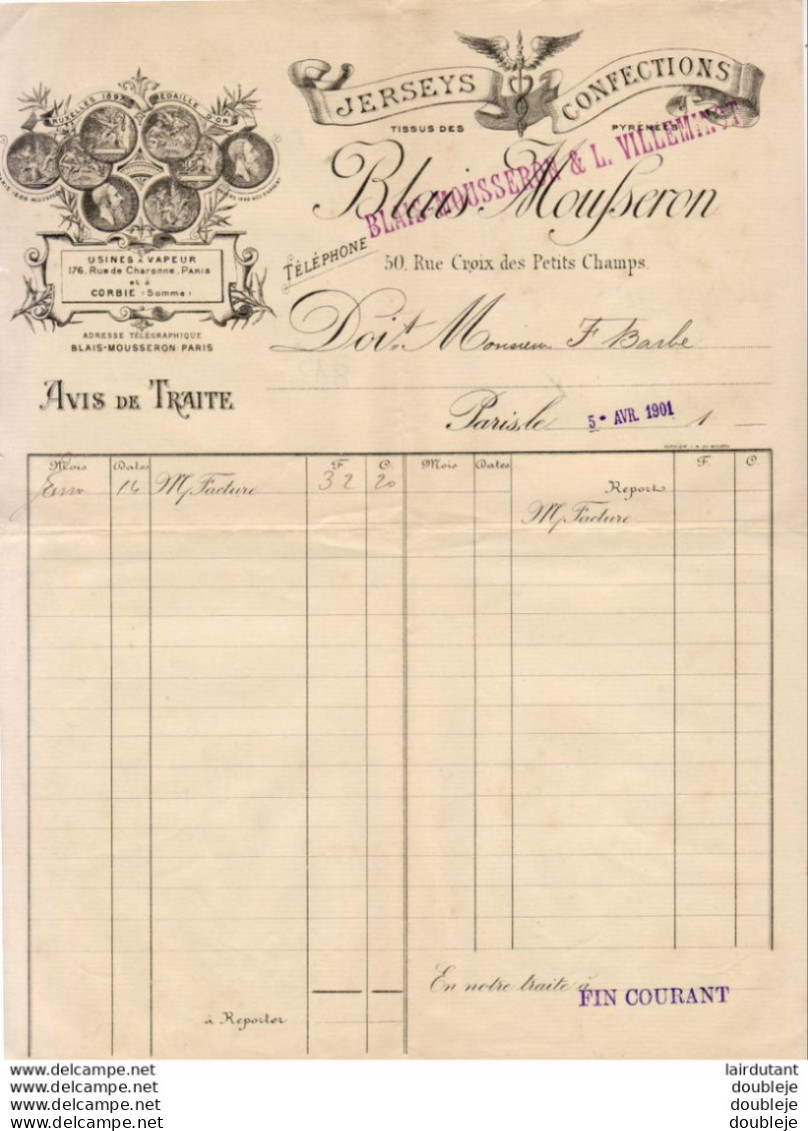 JERSEYS CONFECTIONS
TISSUS DES PYRÉNÉES
BRUXELLES 1897 MÉDAILLE D'OR
Blais-Mousseron
BLAIS-MOUSSERON & L. VILLEMINOT
TÉLÉPHONE
50, Rue Croix des Petits Champs.
USINES À VAPEUR
176, Rue de Charonne, PARIS
et à
CORBIE (Somme)
ADRESSE TÉLÉGRAPHIQUE
BLAIS-MOUSSERON-PARIS
Doit Monsieur F Barbe
AVIS DE TRAITE
Paris, le 5 - AVR. 1901 1
Mois Dates F. C. Mois Dates F. C.
14 M/ Facture 32 20 Report
M/ Facture
En notre traite à FIN COURANT
à Reporter
www.delcampe.net
www.delcampe.net
www.delcampe.net
www.delcampe.net
lairdutant
doubleje
doubleje
doubleje